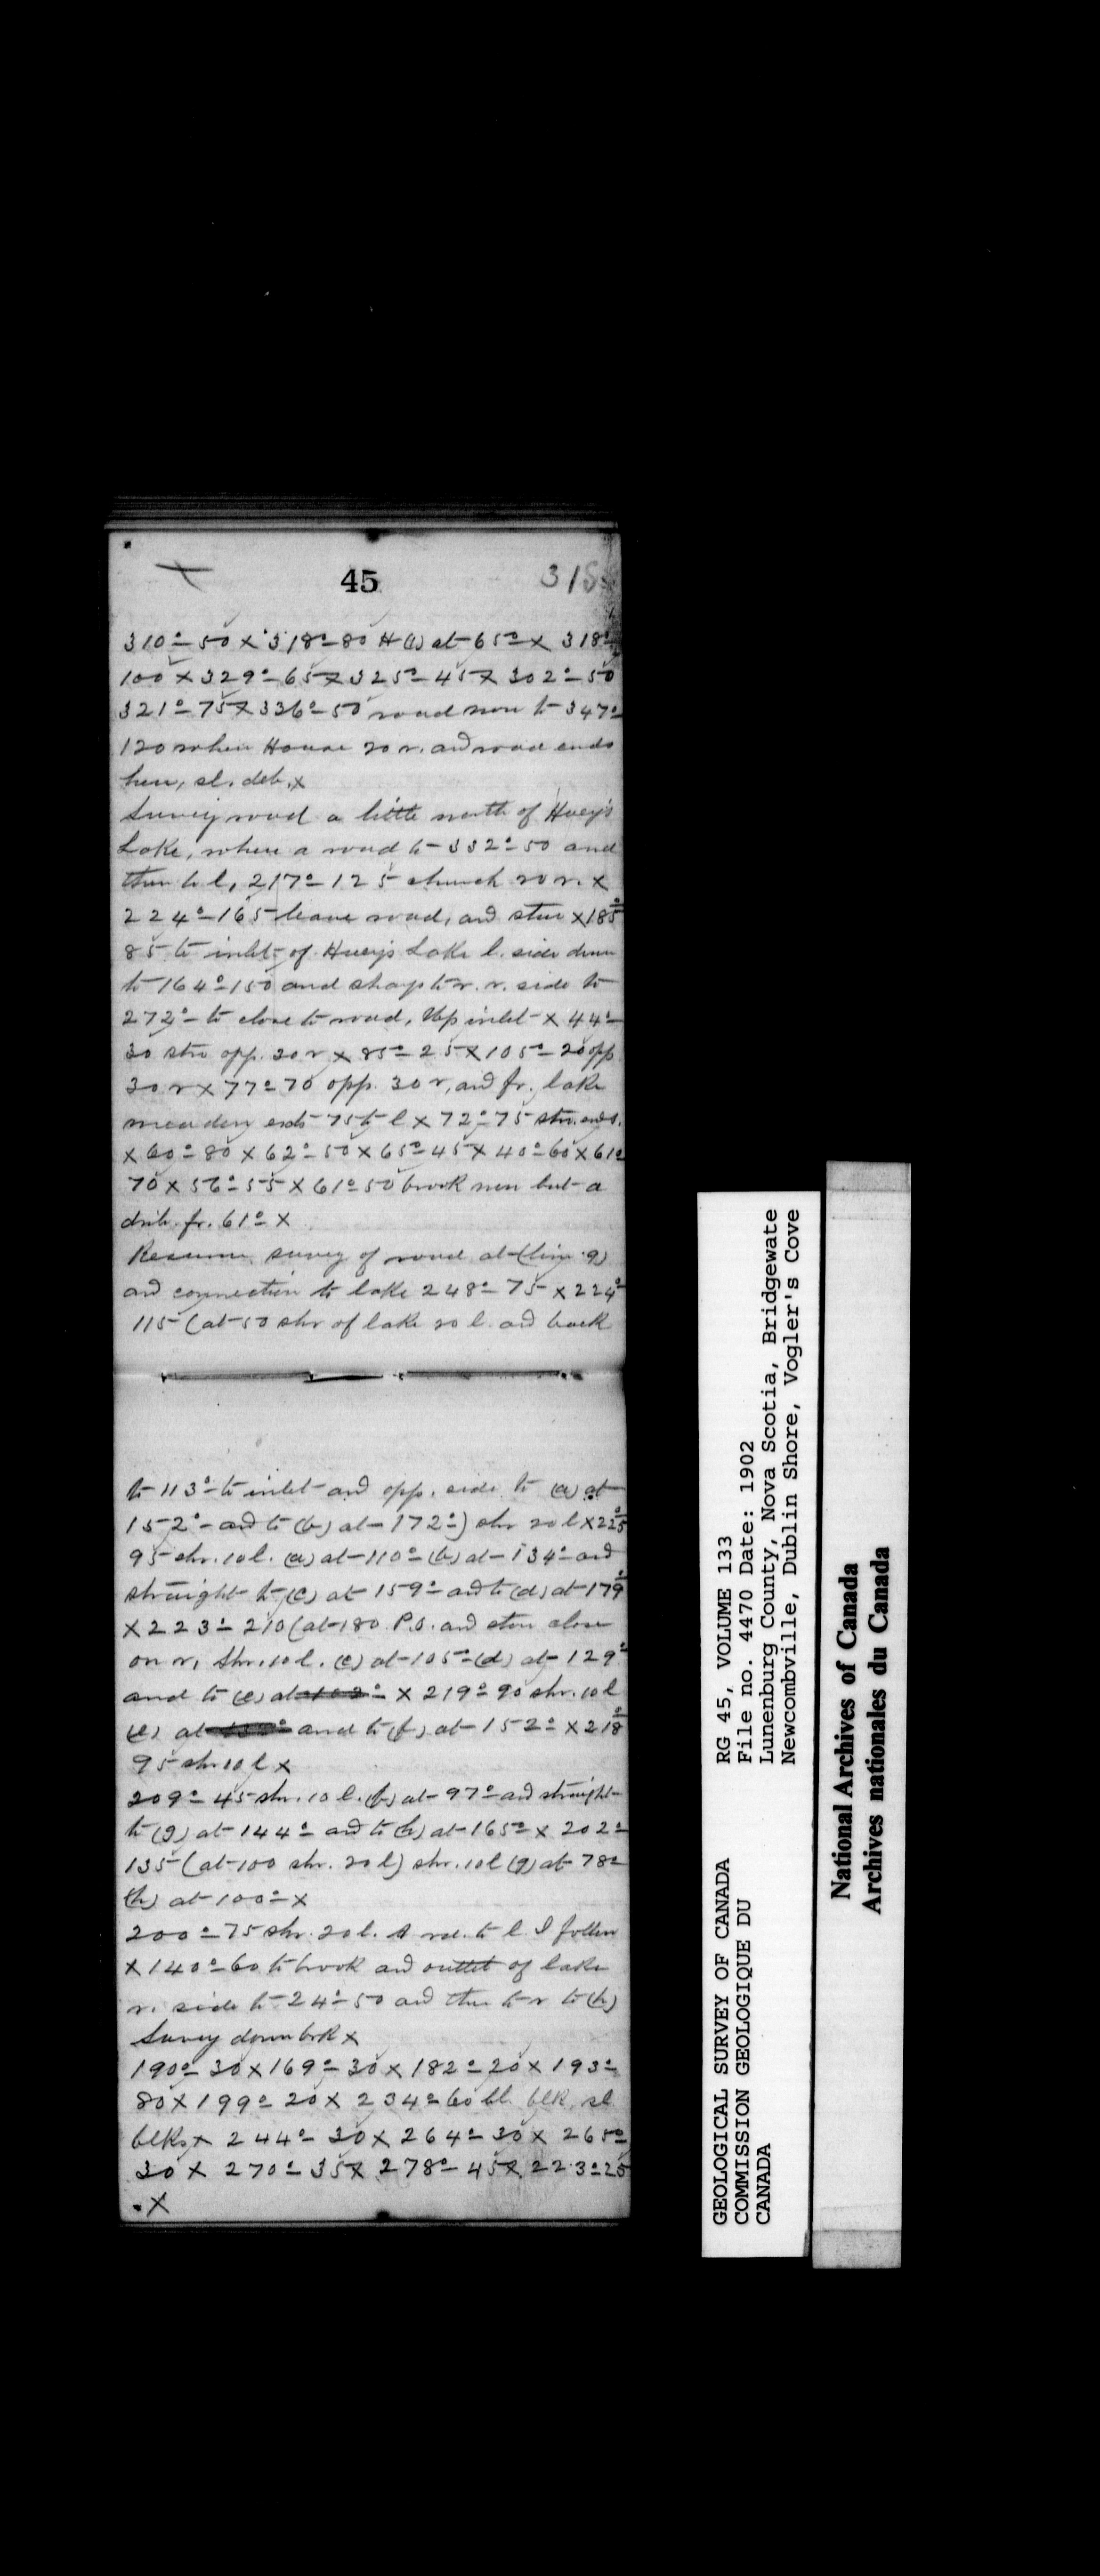 45
315
310° 50 × 318° 80 H (1) at 65° × 318°
100 × 329° 65 × 325° 45 × 302° 50
321° 75 × 336° 50 road now to 347°
120 when House 20 r. and road ends
here, sl. deb. ×
Survey road a little north of Huey's
Lake, where a road to 332° 50 and
then to l, 217° 125 church 20 r. ×
224° 165 leave road, and × 185°
85 to inlet of Huey's Lake l. side down
to 164° 150 and sharp to r. r. side to
272° to close to road, Up inlet × 44°
30 opp. 20 r × 85° 25 × 105° 20 opp
30 r × 77° 70 opp. 30 r, and fr. lake
meadow ends 75 to l × 72° 75 ends.
× 60° 80 × 62° 50 × 65° 45 × 40° 60 × 61°
70 × 56° 55 × 61° 50 brook now but a
drib. fr. 61° ×
Resume survey of road at (line 9)
and connection to lake 248° 75 × 224°
115 (at 50 shr of lake 20 l. and back
to 113° to inlet and opp. side to (a) at
152° and to (b) at 172°) shr 20 l × 225°
95 shr. 10 l. (a) at 110° (b) at 134° and
straight to (c) at 159° and to (d) at 179°
× 223° 210 (at 180 P.O. and store close
on r, shr. 10 l. (c) at 105° (d) at 129°
and to (e) at × 219° 90 shr. 10 l
(e) at and to (f) at 152° × 218°
95 shr 10 l ×
209° 45 shr. 10 l. (f) at 97° and straight
to (g) at 144° and to (h) at 165° × 202°
135 (at 100 shr. 20 l) shr. 10 l (g) at 78°
(h) at 100° ×
200° 75 shr. 20 l. A rd. to l. I follow
× 140° 60 to brook and outlet of lake
r. side to 24° 50 and then to r to (h)
Survey down brk ×
190° 30 × 169° 30 × 182° 20 × 193°
80 × 199° 20 × 234° 60 bl. blk, sl
blks × 244° 30 × 264° 30 × 265°
30 × 270° 35 × 278° 45 × 223° 25
×
GEOLOGICAL SURVEY OF CANADA
COMMISSION GEOLOGIQUE DU
CANADA
RG 45, VOLUME 133
File no. 4470 Date: 1902
Lunenburg County, Nova Scotia, Bridgewate
Newcombville, Dublin Shore, Vogler's Cove
National Archives of Canada
Archives nationales du Canada